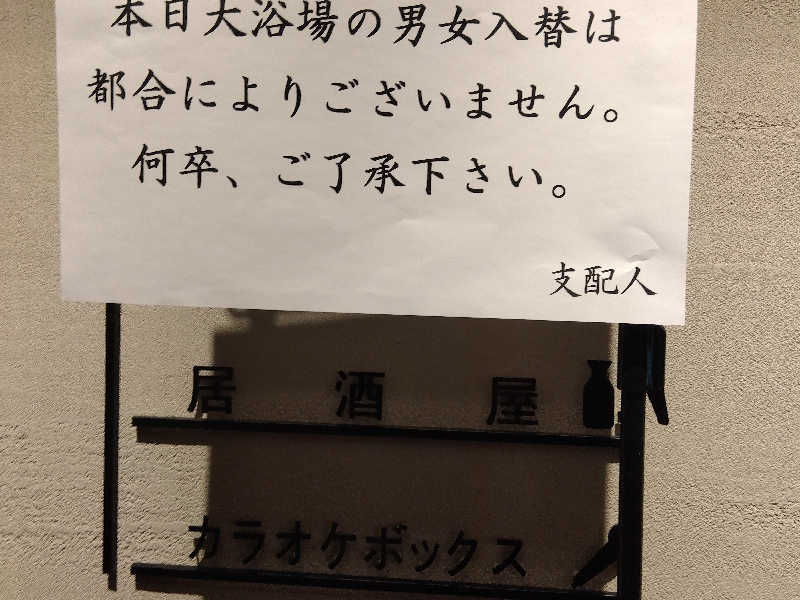 本日大浴場の男女入替は
都合によりございません。
何卒、ご了承下さい。
支配人
居酒屋
カラオケボックス